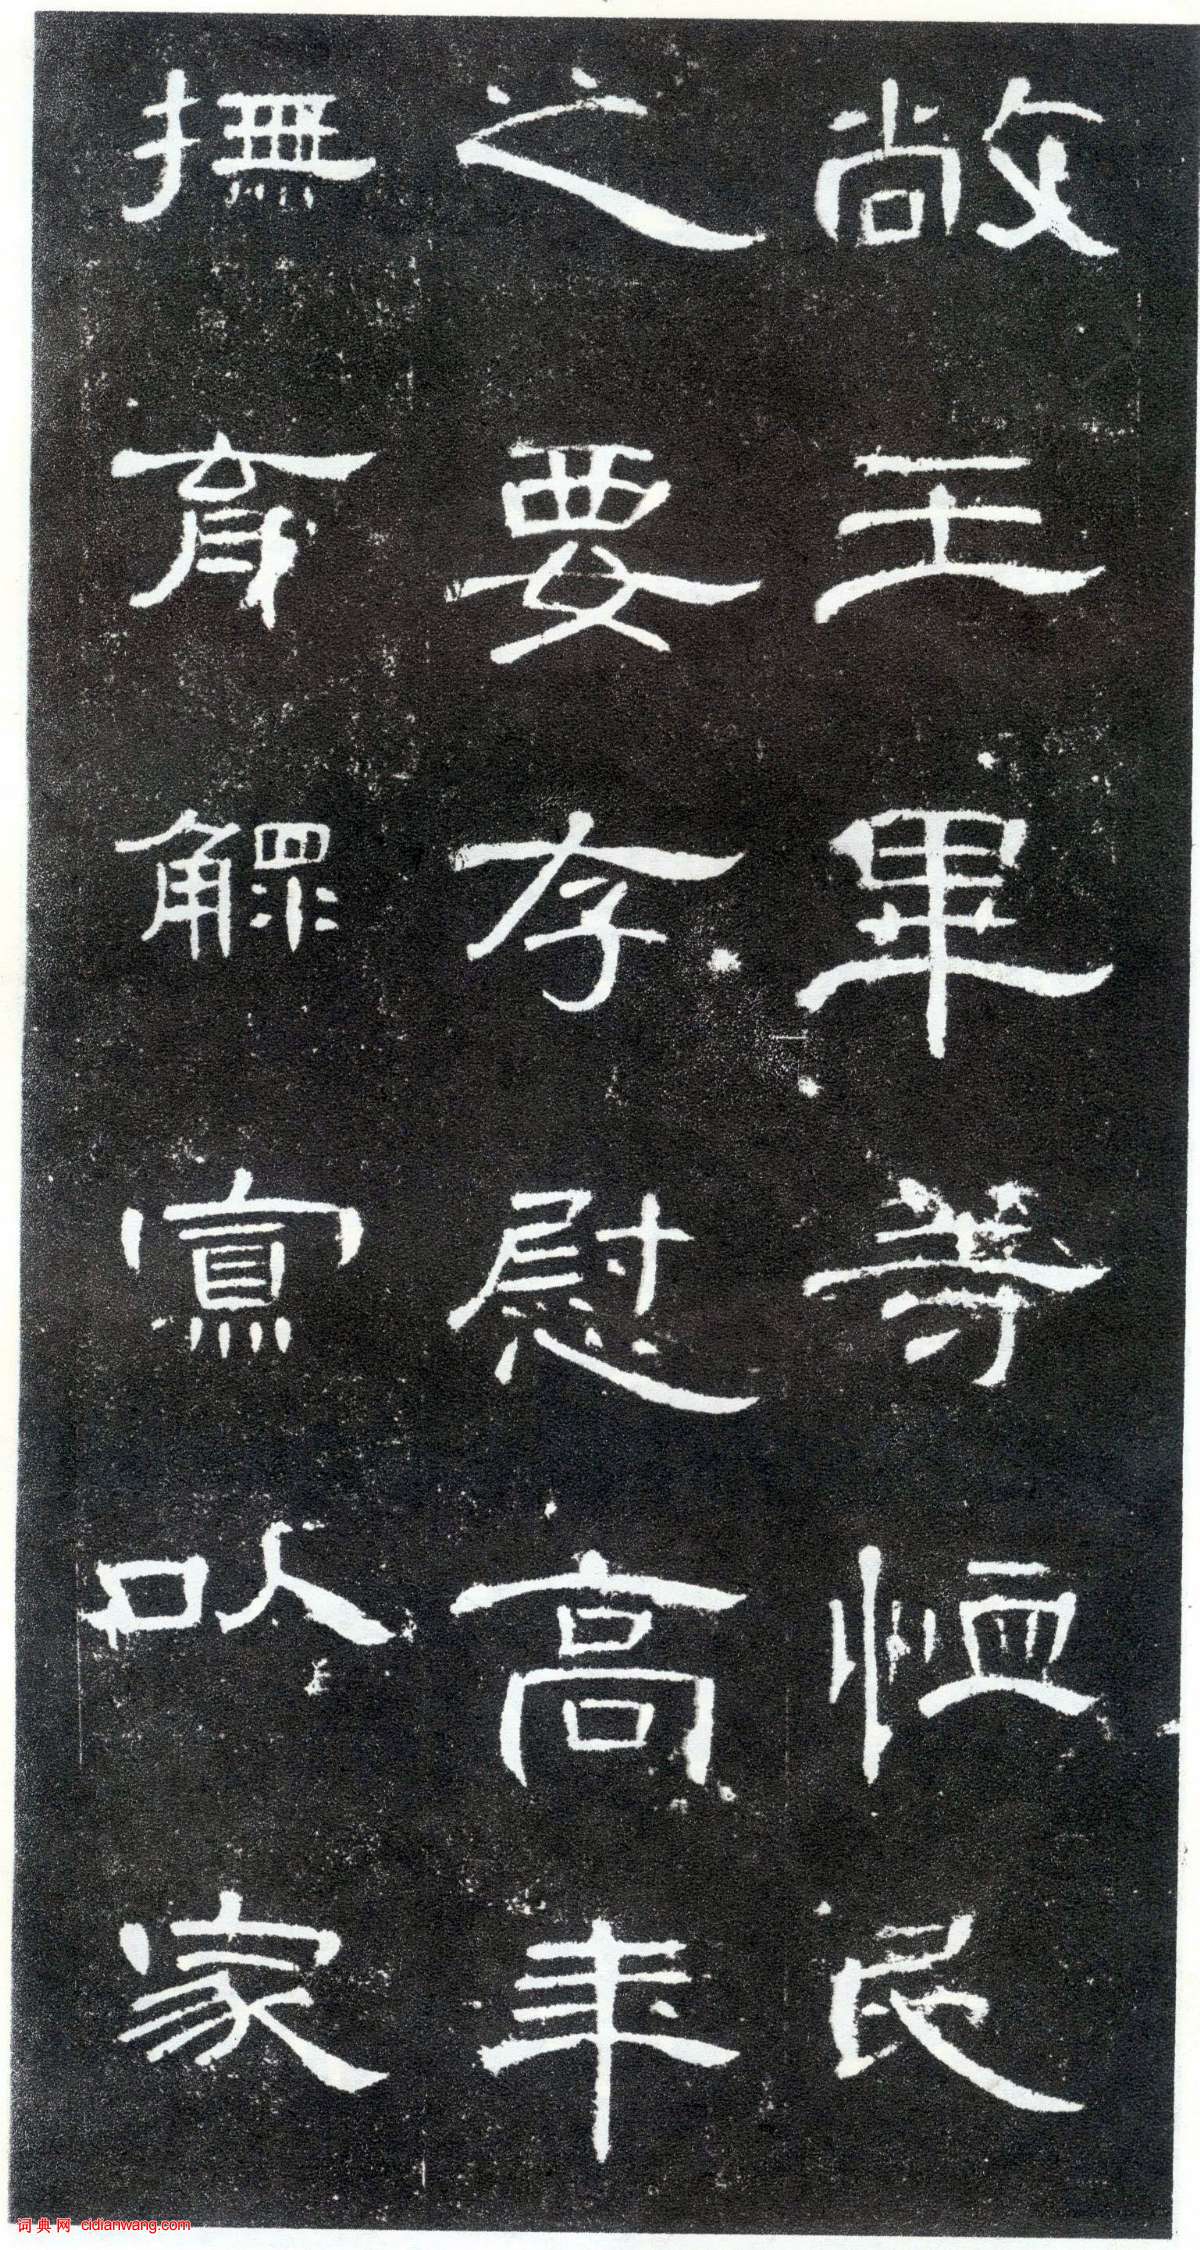 敞王畢等恤民
之要存慰高年
撫育鰥寡以家
词典网 cidianwang.com